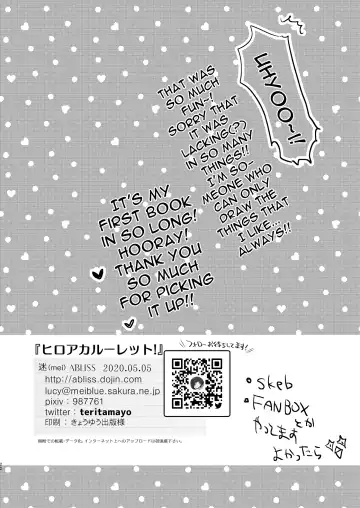 UHYOO~!!
THAT WAS
SO MUCH
FUN~!
SORRY THAT
IT WAS
LACKING(?)
IN SO MANY
THINGS!!
I'M SO-
MEONE WHO
CAN ONLY
DRAW THE
THINGS THAT
I LIKE...
ALWAYS!!
IT'S MY
FIRST BOOK
IN SO LONG!
HOORAY!
THANK YOU
SO MUCH
FOR PICKING
IT UP!!
『ヒロアカルーレット!』
迷(mei) ABLISS 2020.05.05
http://abliss.dojin.com
lucy@meiblue.sakura.ne.jp
pixiv : 987761
twitter : teritamayo
印刷 : きょうゆう出版様
無断での転載・データ化、インターネット上へのアップロードは御遠慮下さい。
フォローお待ちしてます!
・skeb
・FANBOX とか
やってます
よかったら